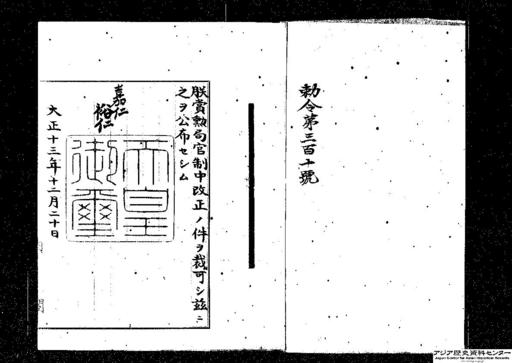 勅令第三百十號
朕賞勲局官制中改正ノ件ヲ裁可シ茲ニ
之ヲ公布セシム
嘉仁
裕仁
天皇御璽
大正十三年十二月二十日
アジア歴史資料センター
Japan Center for Asian Historical Records